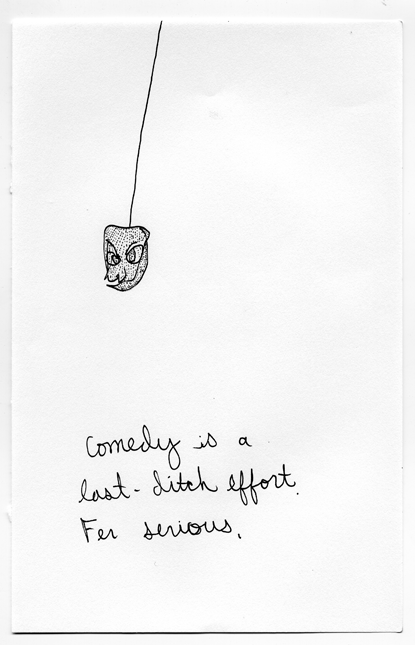 Comedy is a
last-ditch effort.
Fer serious.